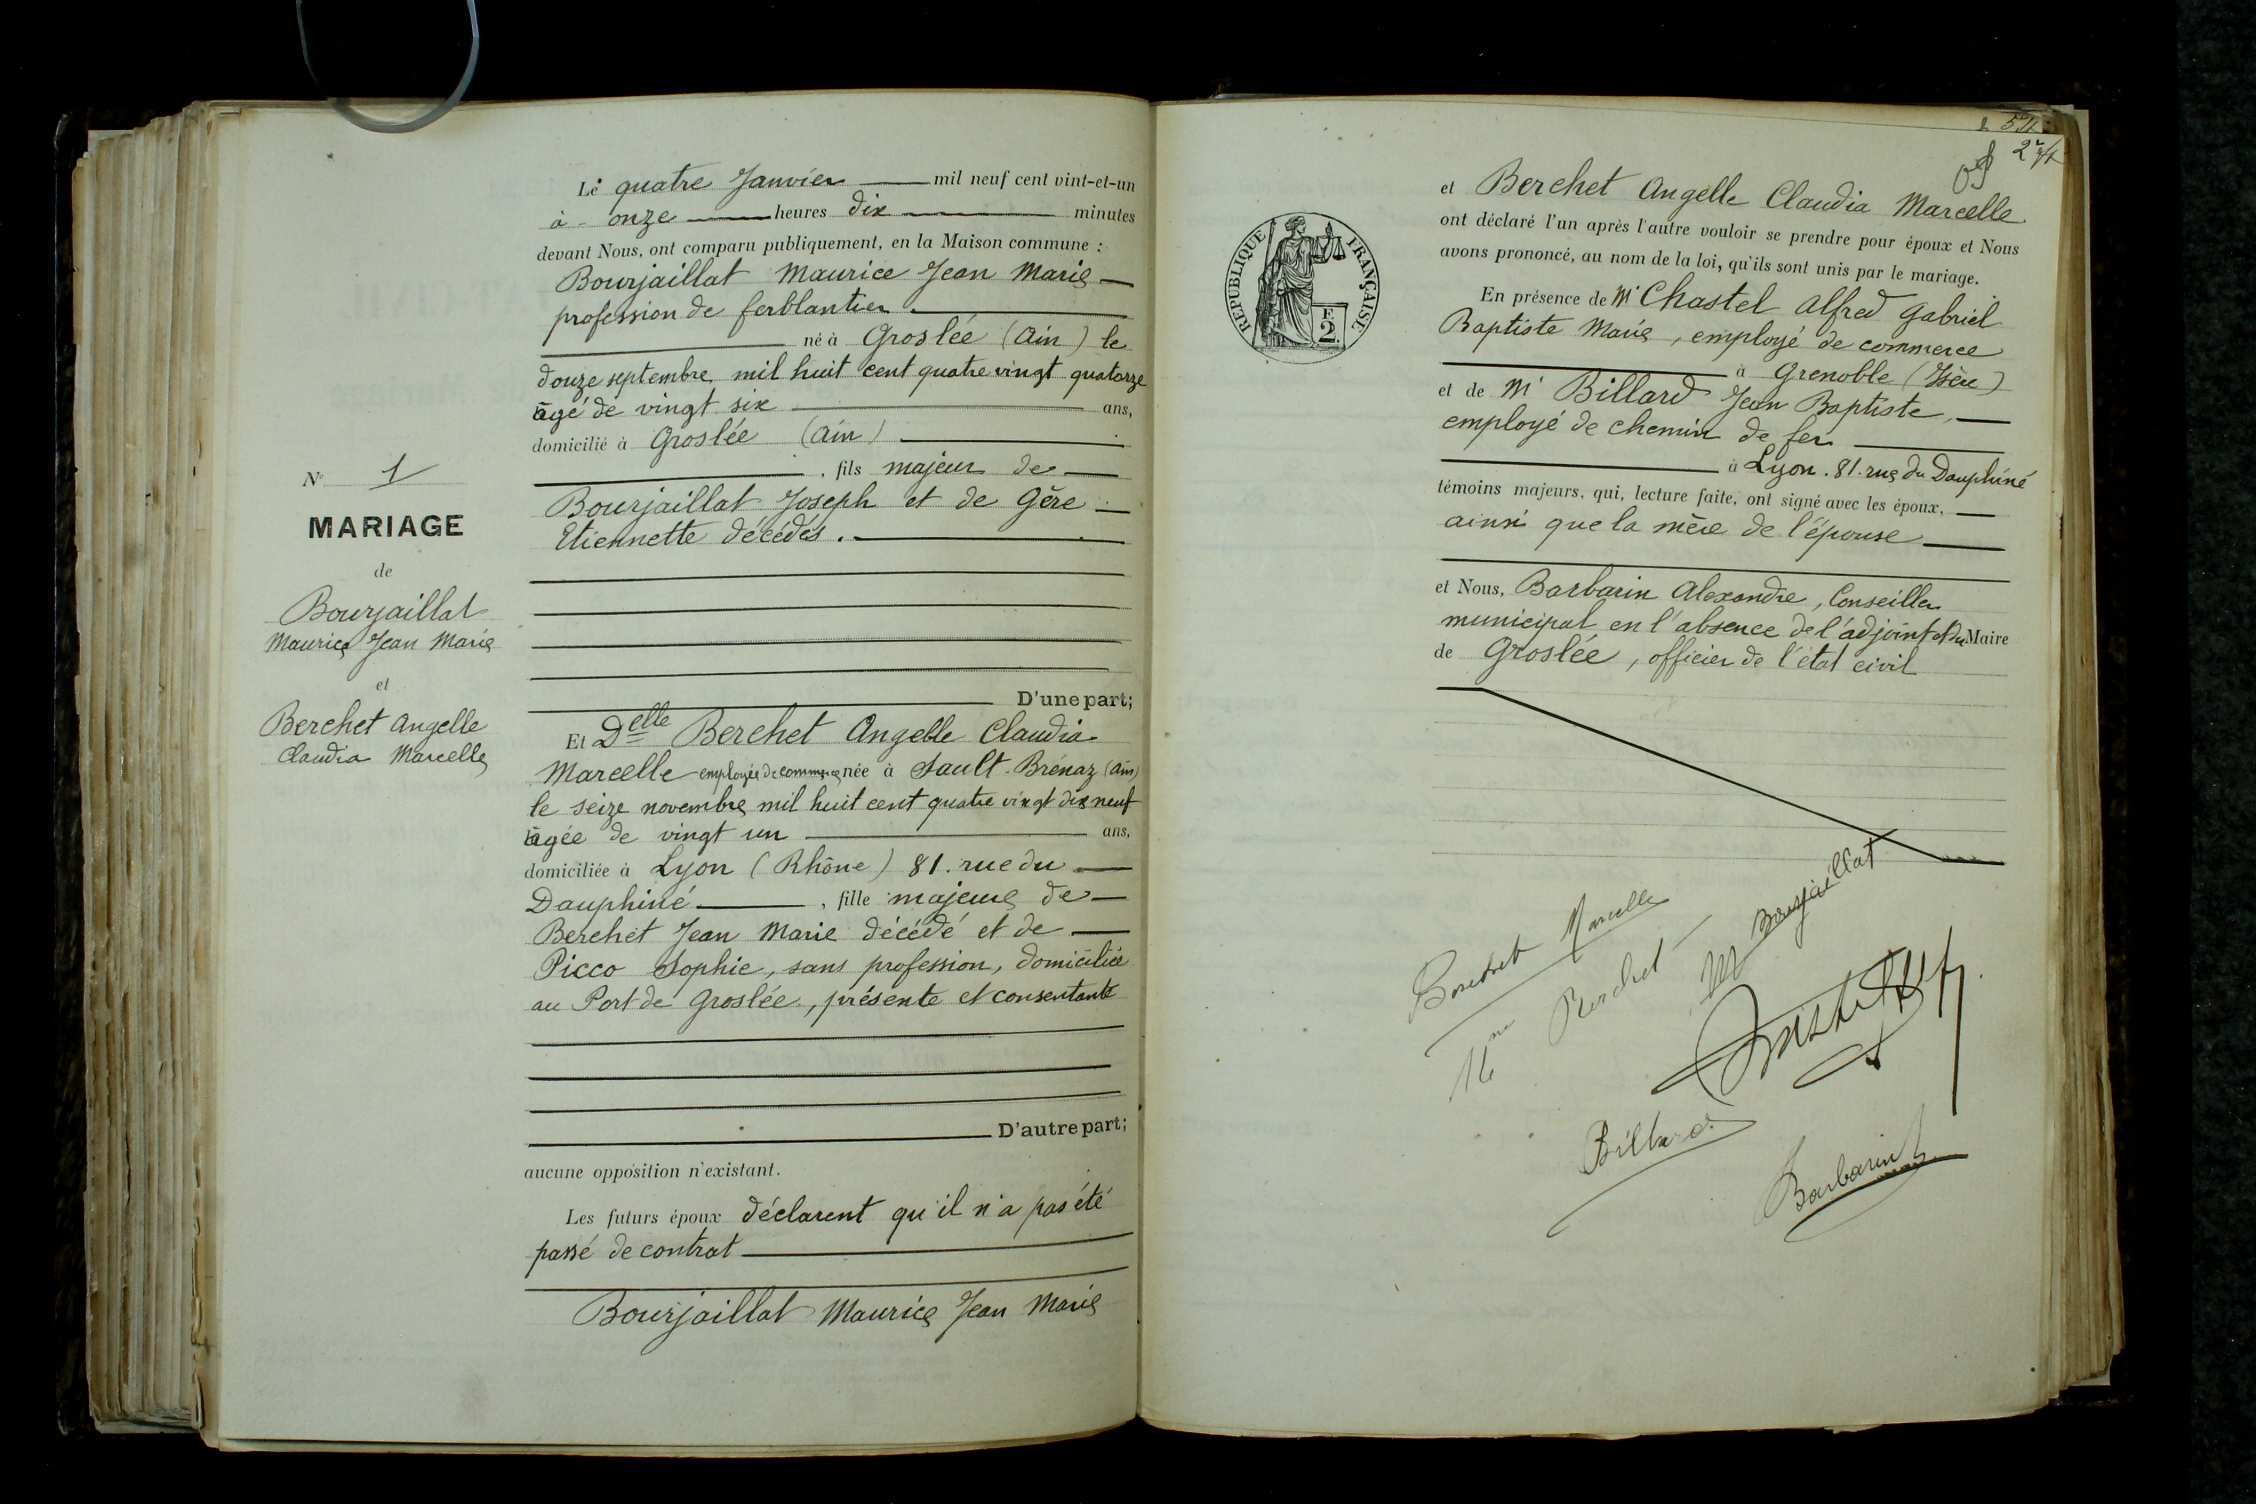 Le quatre Janvier mil neuf cent vint-et-un
à onze heures dix minutes
devant Nous, ont comparu publiquement, en la Maison commune :
Bourjaillat Maurice Jean Marie
profession de ferblantier
né à Groslée (Ain) le
douze septembre mil huit cent quatre vingt quatorze
âgé de vingt six ans,
domicilié à Groslée (Ain)
, fils majeur de
Bourjaillat Joseph et de Gère
Etiennette décédés.
D'une part;
N° 1
MARIAGE
de
Bourjaillat
Maurice Jean Marie
et
Berchet Angelle
Claudia Marcelle
Et Delle Berchet Angelle Claudia
Marcelle employée de commerce née à Sault-Brénaz (Ain)
le seize novembre mil huit cent quatre vingt dix neuf
âgée de vingt un ans,
domiciliée à Lyon (Rhône) 81. rue du
Dauphiné , fille majeure de
Berchet Jean Marie décédé et de
Picco Sophie, sans profession, domiciliée
au Port de Groslée, présente et consentante
D'autre part;
aucune opposition n'existant.
Les futurs époux déclarent qu'il n'a pas été
passé de contrat
Bourjaillat Maurice Jean Marie
et Berchet Angelle Claudia Marcelle
ont déclaré l'un après l'autre vouloir se prendre pour époux et Nous
avons prononcé, au nom de la loi, qu'ils sont unis par le mariage.
RÉPUBLIQUE FRANÇAISE
F.
2.
En présence de Mr Chastel Alfred Gabriel
Baptiste Marie, employé de commerce
à Grenoble (Isère)
et de Mr Billard Jean Baptiste,
employé de chemin de fer
à Lyon. 81. rue du Dauphiné
témoins majeurs, qui, lecture faite, ont signé avec les époux,
ainsi que la mère de l'épouse
et Nous, Barbarin Alexandre, Conseiller
municipal en l'absence de l'adjoint et du Maire
de Groslée, officier de l'état civil
Berchet Marcelle
M Bourjaillat
Berchet
Billard
Barbarin